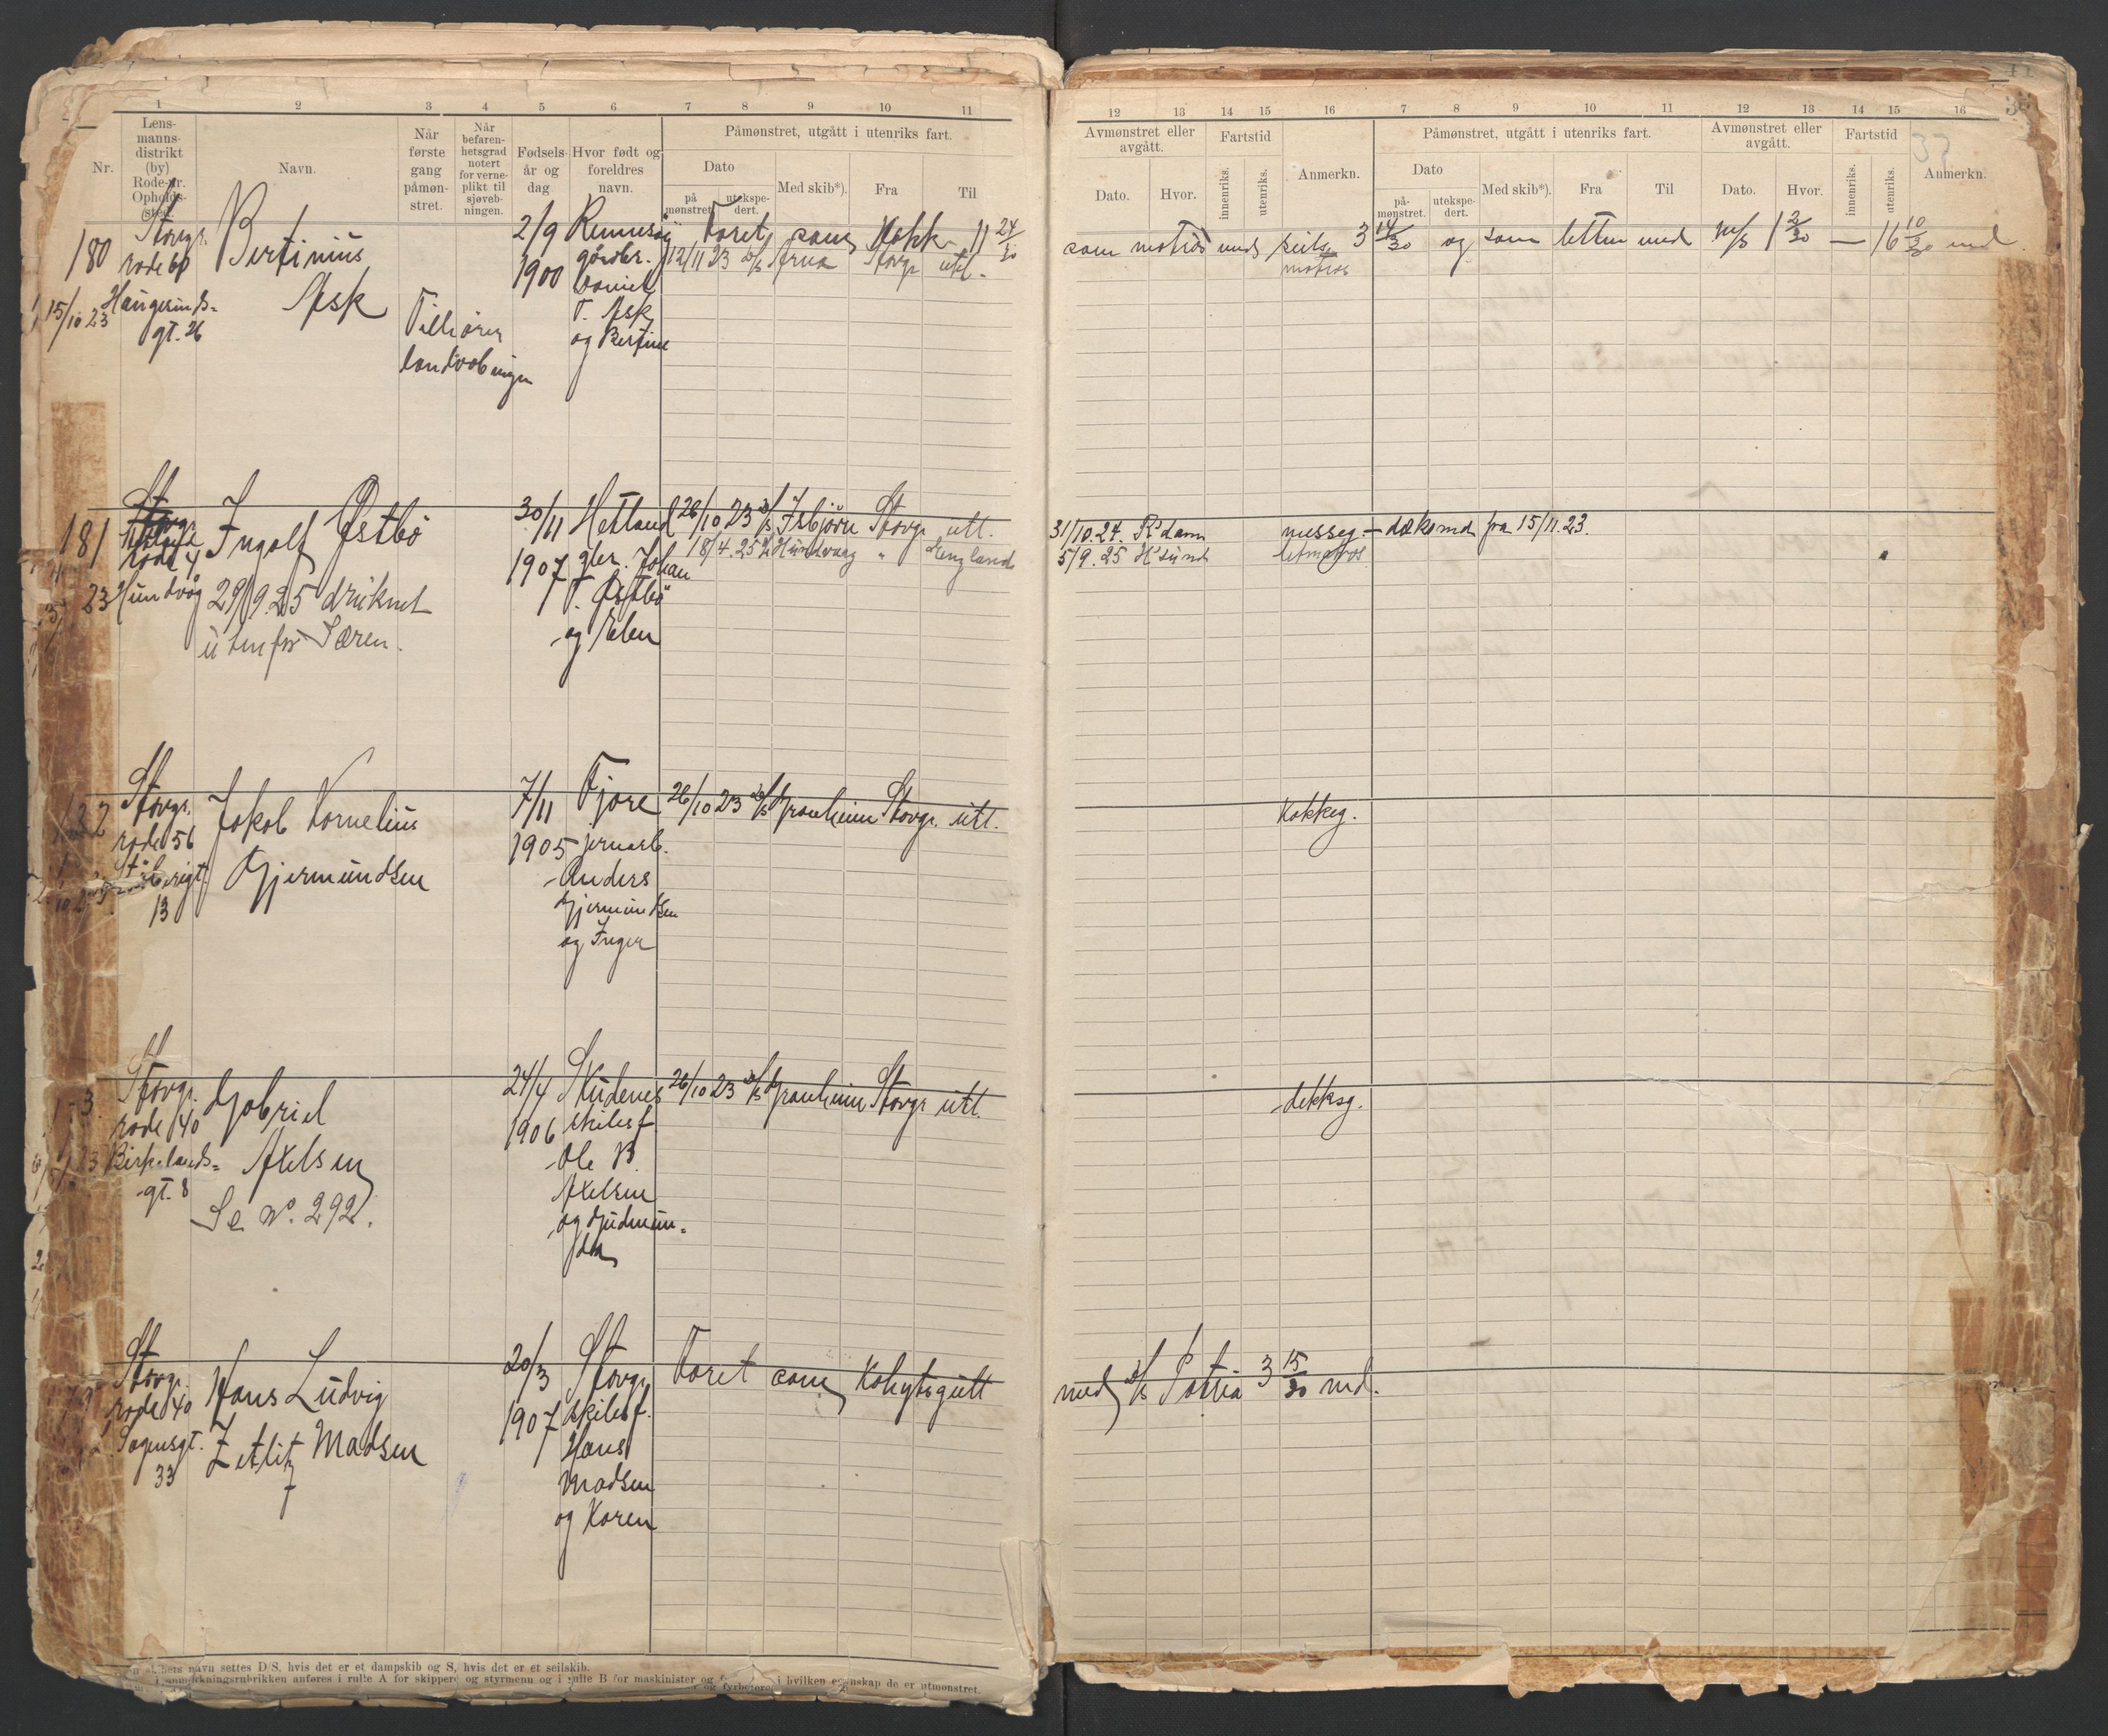 1 2 3 4 5 6 7 8 9 10 11
Nr.
Lens-
manns-
distrikt
(by)
Rode-nr.
Opholds-
sted.
Navn.
Når
første
gang
påmøn-
stret.
Når
befaren-
hetsgrad
notert
for verne-
plikt til
sjøveb-
ningen.
Fødsels-
år og
dag
Hvor født og
foreldres
navn.
Påmønstret, utgått i utenriks fart.
Dato
på
mønstret.
utekspe-
dert.
Med skib*).
Fra
Til
12 13 14 15 16 7 8 9 10 11 12 13 14 15 16
Avmønstret eller
avgått.
Dato.
Hvor.
Fartstid
innenriks.
utenriks.
Anmerkn.
Påmønstret, utgått i utenriks fart.
Dato
på-
mønstret.
utekspe-
dert.
Med skib*).
Fra
Til
Avmønstret eller
avgått.
Dato.
Hvor.
Fartstid
innenriks.
utenriks.
Anmerkn.
180
15/10 23
Stavgr.
rode 60
Haugesunds-
gt. 26
Bertinius
Ask
Tilhører
landvebningen
2/9
1900
Rennesöy
gårdbr.
Daniel
T. Ask
og Bertine
Faret som Kokk 11 24/30
12/11 23 D/S Arna Stavgr. utl.
som matros med seils. 3 14/30 og som lettm med M/S 1 2/30 — 16 10/30 md
matros
181
23
Hetland
rode 4
Hundvåg
Ingolf Østbö
29/9.25 druknet
utenfor Jæren.
30/11
1907
Hetland
gbr. Johan
T. Østbö
og Elen
26/10 23 D/S Isbjörn Stavgr. utl.
18/4.25 Hundvaag " England
31/10.24. R'dam
5/9.25 H'sund
messeg. — doksmd fra 15/11.23.
letmatros
Stavgr.
rode 56
13
Jakob Kornelius
Gjermundsen
7/11
1905
Fjøre
jernarb.
Anders
Gjermundsen
og Inger
26/10 23 D/S Granheim Stavgr. utl.
Kokkeg.
Stavgr.
rode 40
Birkelands-
gt. 8
Gabriel
Axelsen
Se No. 292.
24/4
1906
Skudenes
skibsf.
Ole B.
Axelsen
og Gudmun-
da
26/10 23 D/S Granheim Stavgr utl.
dekksg.
Stavgr.
rode 40
33
Hans Ludvig
Zetlitz Madsen
20/3
1907
Stavgr.
skibsf.
Hans
Madsen
og Karen
Faret som Kahytsgutt
med D/S Patria 3 15/30 md.
navn settes D/S, hvis det er et dampskib og S, hvis det er et seilskib.
anføres i rulle A for skippere og styrmenn og i rulle B for maskinister og i hvilken egenskap de er utmønstret.